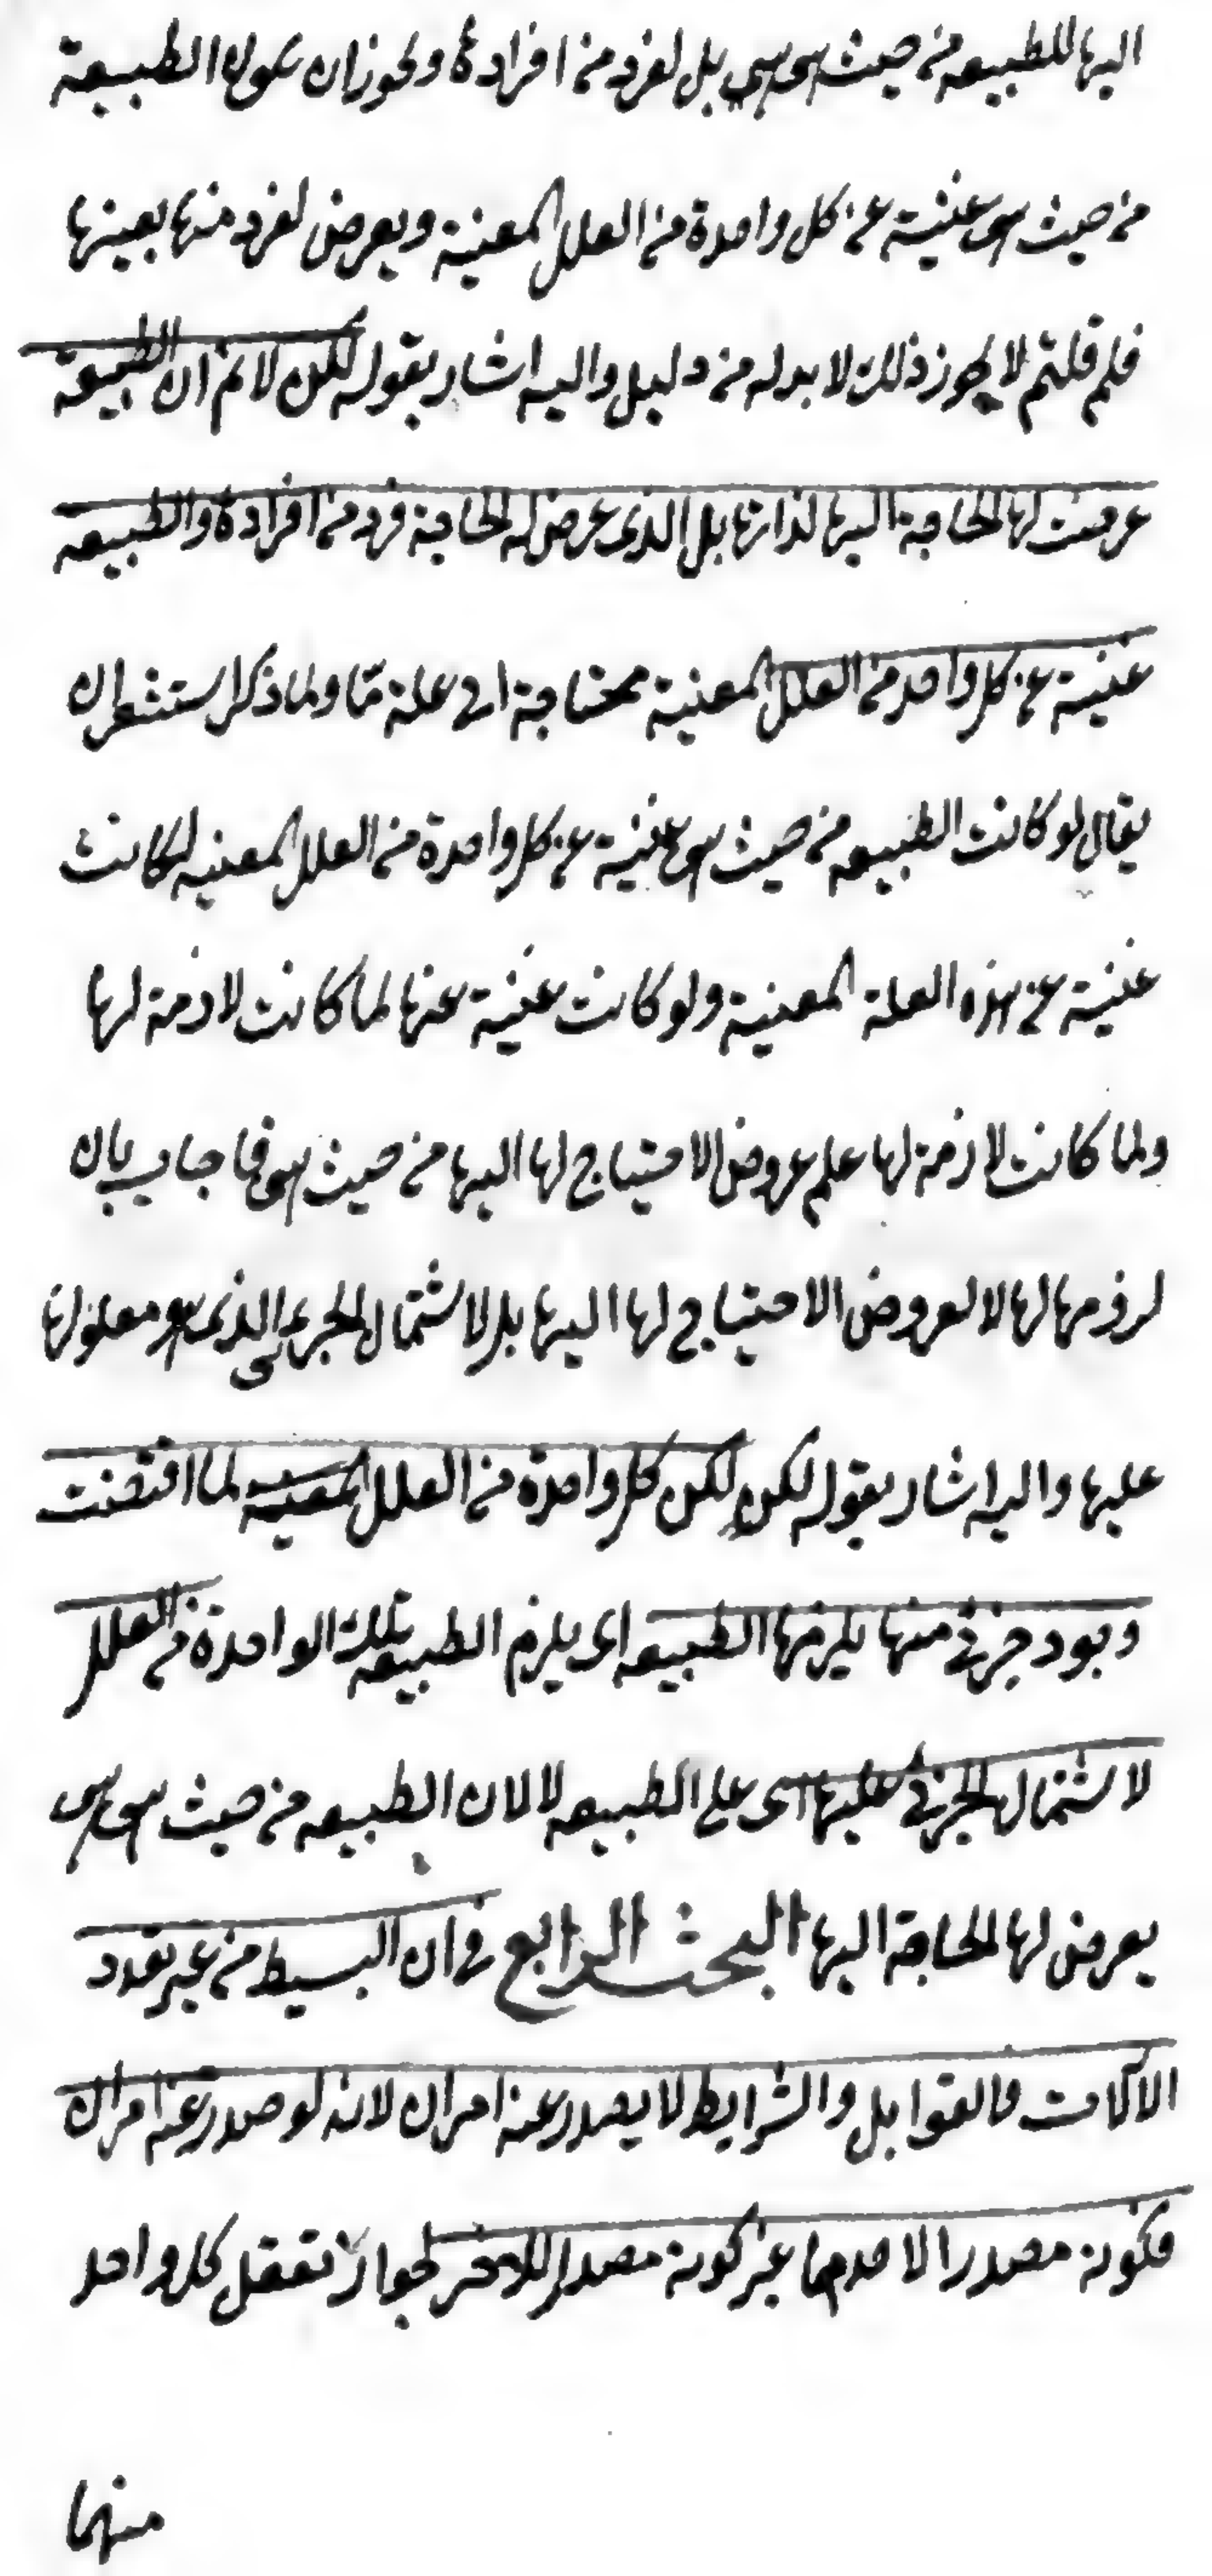 اليها للطبيعه من حيث هى هى بل لفرد من افرادها ويجوز ان يكون الطبيعة
من حيث هى غنية عن كل واحدة من العلل المعنية ويعرض لفرد منها بعينها
فلم قلتم لا يجوز ذلك لا بد له من دليل واليه اشار بقوله لكن لا نم ان الطبيعة
عرضت لها الحاجة اليها لذاتها بل الذى عرض له الحاجة فرد من افرادها والطبيعه
غنية عن كل واحد من العلل المعنية محتاجة الى علة مّا ولما ذكر استشعر ان
يقال لو كانت الطبيعه من حيث هى غنية عن كل واحدة من العلل المعنيه لكانت
غنية عن هذه العلة المعنية ولو كانت غنية عنها لما كانت لازمة لها
ولما كانت لازمة لها علم عروض الاحتياج لها اليها من حيث هى فاجاب بان
لزومها لها لا لعروض الاحتياج لها اليها بل لاشتمال الجزئى الذى هو معلولها
عليها واليه اشار بقوله لكن لكن كل واحدة من العلل المعينه لما اقتضت
وجود جزئى منها يلزمها الطبيعه اى يلزم الطبيعة تلك الواحدة من العلل
لاشتمال الجزئى عليها اى على الطبيعه لا لان الطبيعه من حيث هى هى
يعرض لها الحاجة اليها البحث الرابع فى ان البسيط من غير تعدد
الآلات والقوابل والشرايط لا يصدر عنه امران لانه لو صدر عنه امران
فكونه مصدرا لاحدهما غير كونه مصدرا للاخر لجواز تعقل كل واحد
منهما